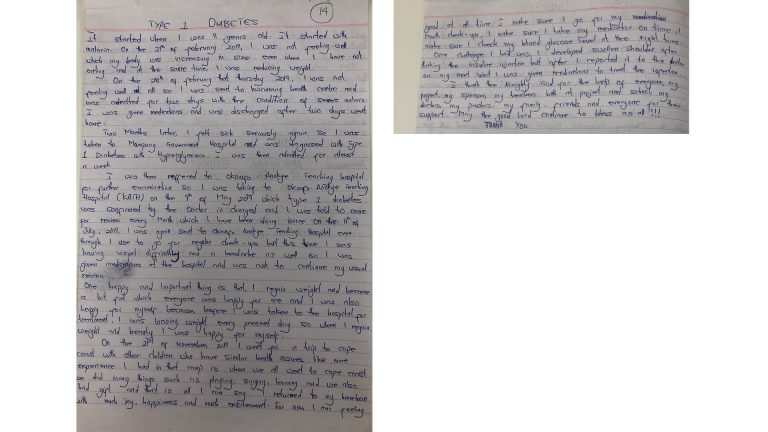 14
TYPE 1 DIABETES
It started when I was 11 years old. It started with
malaria. On the 21st of february 2019, I was not feeling well
which my body was increasing in size even when I have not
eating and at the same time I was reducing weight.
On the 28th of february that thursday 2019, I was not
feeling well at all so I was sent to health centre and
was admitted for two days with the condition of severe malaria.
I was given medications and was discharged after two days went
home.
Two Months later, I felt sick seriously again so I was
taken to Mampong Government Hospital and was diagnosed with Type
1 Diabetes with Hyperglycemia. I was then admitted for almost
a week.
I was then reffered to Okomfo Anokye Teaching hospital
for further examination so I was taking to Okomfo Anokye Teaching
Hospital (KATH) on the 9th of May 2019 which type 1 diabetes
was confirmed by the Doctor in charged and I was told to come
for review every Month which I have been doing since. On the 11th of
July, 2019. I was again sent to Okomfo Anokye Teaching Hospital even
through I use to go for regular check-ups but this time I was
having visual difficulty and a headache as well so I was
given medications at the hospital and was ask to continue my usual
review.
One happy and important thing is that I regain weight and became
a bit fat which everyone was happy for me and I was also
happy for myself because before I was taken to the hospital for
treatment I was loosing weight every present day so when I regain
weight and beauty I was happy for myself.
On the 21st of November, 2019 I went for a trip to cape
coast with other children who have similar health issues like mine
experience I had in that camp is when we all went to cape coast
we did many things such as playing, singing, and we also
had gift and that is all I can say. I returned to my hometown
with much joy, happiness and much excitement. For now I am feeling
good at all time. I make sure I go for my medication
check-up, I make sure I take my medication on time, I
make sure I check my blood glucose level at the right time.
One challenge I had was, I developed swollen shoulder after
taking the insulin injection but after I reported it to the doctor
on my next visit I was given medications to treat the infection.
I thank the Almighty God for the help of everyone, my
project, my sponsor, my teachers both at project and school, my
doctors, my pastors, my family, friends and everyone for their
support. May the good Lord continue to bless us all!!!
THANK YOU